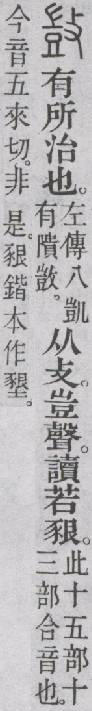 敳有所治也。左傳八凱有隤敳。从攴。豈聲。讀若豤。此十五部十三部合音也。
今音五來切。非是。豤鍇本作墾。